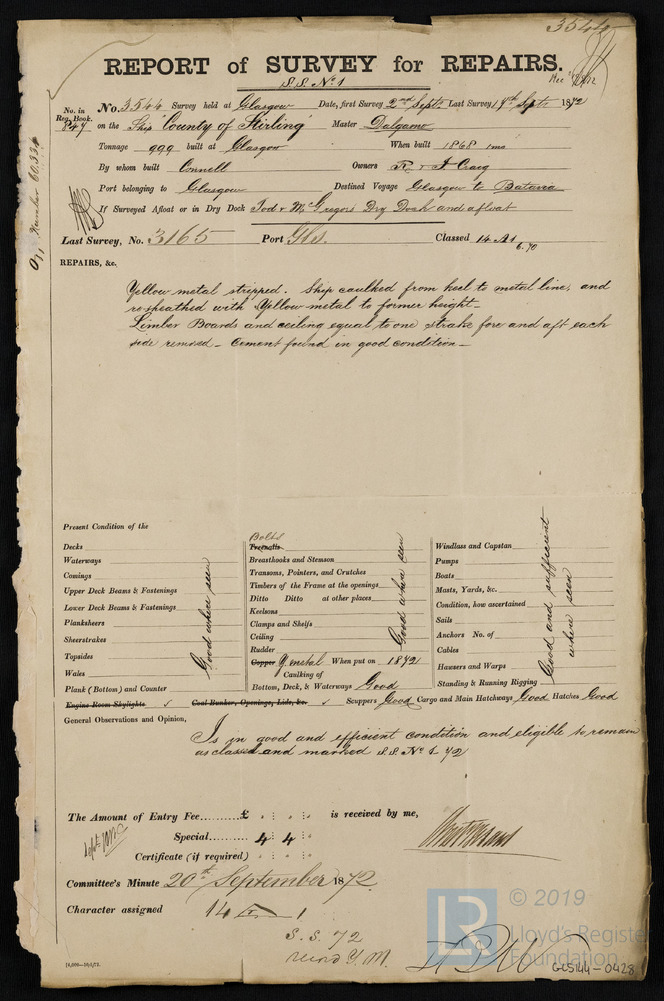 3544
REPORT of SURVEY for REPAIRS.
S.S. No 1
No. in Reg. Book. 847
No. 3544 Survey held at Glasgow Date, first Survey 2nd Sept. Last Survey 17th Sept. 1872
on the Ship "County of Stirling" Master Dalgarno
Tonnage 999 built at Glasgow When built 1868 1mo
By whom built Connell Owners R. & J. Craig
Port belonging to Glasgow Destined Voyage Glasgow to Batavia
If Surveyed Afloat or in Dry Dock Tod & McGregors Dry Dock and afloat
Last Survey, No. 3165 Port Gls. Classed 14 A1 6.70
REPAIRS, &c.
Yellow metal stripped. Ship caulked from keel to metal line, and
resheathed with Yellow metal to former height.
Limber Boards and ceiling equal to one strake fore and aft each
side removed - Cement found in good condition -
Present Condition of the
Decks
Waterways
Comings
Upper Deck Beams & Fastenings
Lower Deck Beams & Fastenings
Planksheers
Sheerstrakes
Topsides
Wales
Plank (Bottom) and Counter
Good where seen
Engine Room Skylights
Bolts
Treenails
Breasthooks and Stemson
Transoms, Pointers, and Crutches
Timbers of the Frame at the openings
Ditto Ditto at other places
Keelsons
Clamps and Shelfs
Ceiling
Rudder
Good where seen
Copper Y metal When put on 1872
Caulking of
Bottom, Deck, & Waterways Good
Coal Bunker, Openings, Lids, &c.
Windlass and Capstan
Pumps
Boats
Masts, Yards, &c.
Condition, how ascertained
Sails
Anchors No. of
Cables
Hawsers and Warps
Standing & Running Rigging
Good and sufficient
when seen
Scuppers Good Cargo and Main Hatchways Good Hatches Good
General Observations and Opinion,
Is in good and efficient condition and eligible to remain
as classed and marked S.S. No 1 72
The Amount of Entry Fee.........£ is received by me,
Special.......... 4 4
Certificate (if required)
Committee's Minute 20th September 1872
Character assigned 14 A 1
S.S. 72
© 2019
LR
Lloyd's Register
Foundation
GLS144-0428